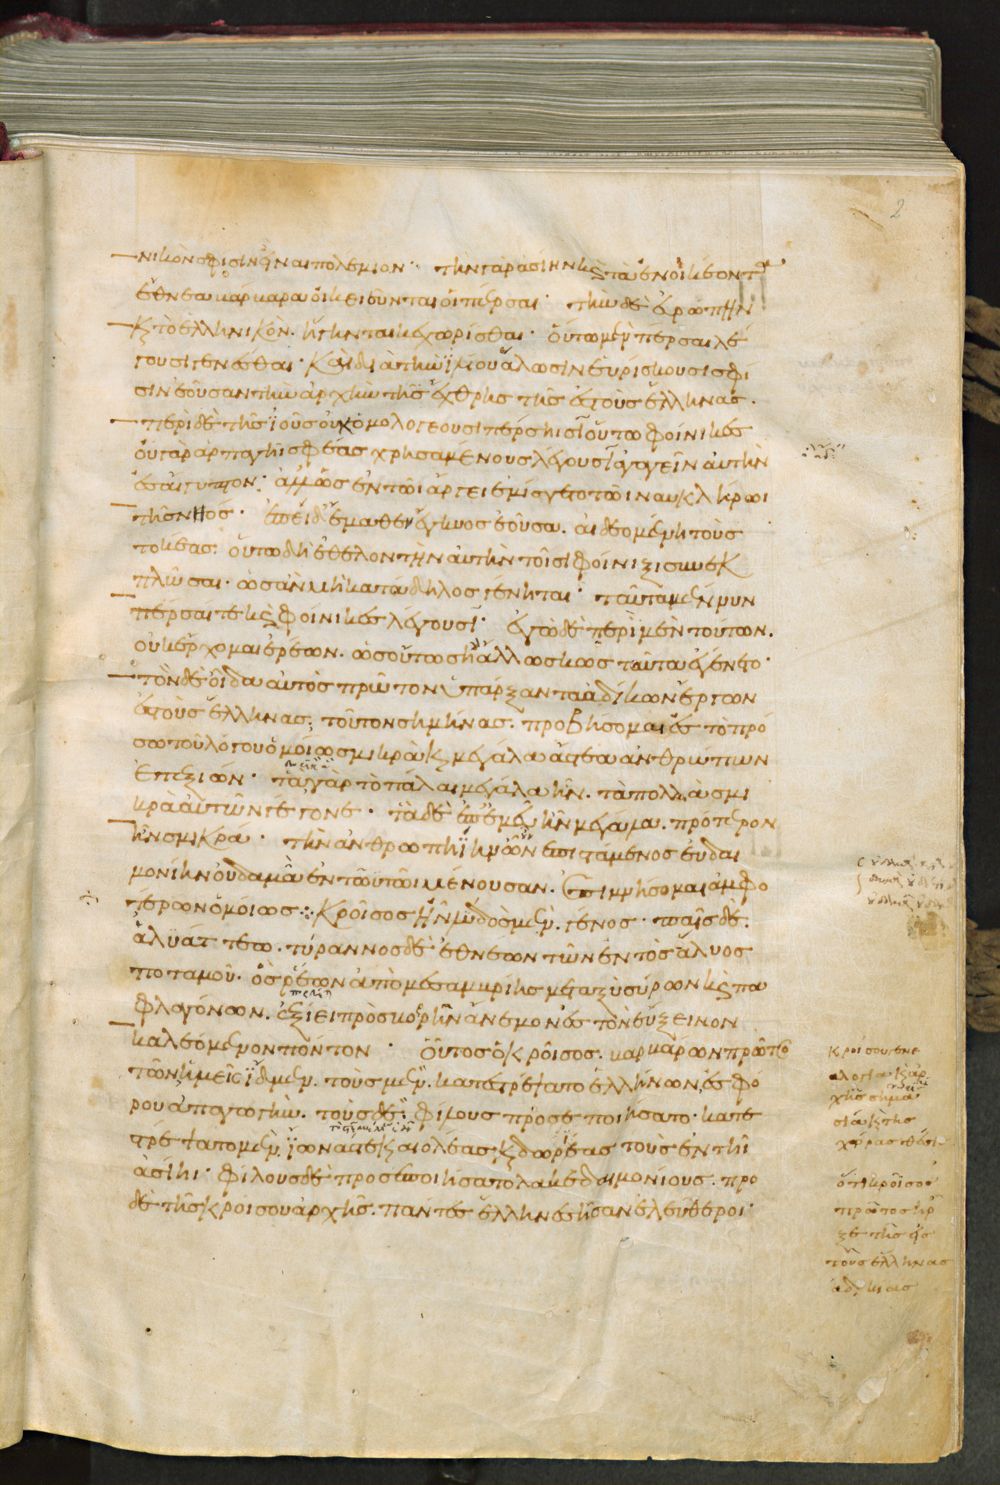 2
νικὸν σφίσιν εἶναι πολέμιον· τὴν γὰρ ἀσίην κς τὰ ἐνοικέοντα
ἔθνεα βάρβαρα οἰκειοῦνται οἱ πέρσαι· τὴν δὲ εὐρώπην
κς τὸ ἑλληνικόν. ἥγηνται κεχωρίσθαι· οὕτω μὲν πέρσαι λέ
γουσι γενέσθαι· καὶ διὰ τὴν ἰλίου ἅλωσιν εὑρίσκουσι σφί
σιν ἐοῦσαν τὴν ἀρχὴν τῆς ἔχθρης τῆς ἐς τοὺς ἕλληνας.
περὶ δὲ τῆς ἰοῦς οὐκ ὁμολογέουσι πέρσηισι οὕτω φοίνικες
οὐ γὰρ ἁρπαγῆι σφέας χρησαμένους λέγουσι ἀγαγεῖν αὐτὴν
ἐς αἴγυπτον· ἀλλ' ὡς ἐν τῶι ἄργει ἐμίσγετο τῶι ναυκλήρωι
τῆς νηός· ἐπεὶ δ' ἔμαθεν ἔγκυος ἐοῦσα. αἰδεομένη τοὺς
τοκέας. οὕτω δὴ ἐθελοντὴν αὐτὴν τοῖσι φοίνιξι συνεκ
πλῶσαι. ὡς ἂν μὴ κατάδηλος γένηται· ταῦτα μέν νυν
πέρσαι τε κς φοίνικες λέγουσι· ἐγὼ δὲ περὶ μὲν τούτων.
οὐκ ἔρχομαι ἐρέων. ὡς οὕτως ἢ ἄλλως κως ταῦτα ἐγένετο·
τὸν δὲ οἶδα αὐτὸς πρῶτον ὑπάρξαντα ἀδίκων ἔργων
ἐς τοὺς ἕλληνας. τοῦτον σημήνας. προβήσομαι ἐς τὸ πρό
σω τοῦ λόγου ὁμοίως σμικρὰ κς μεγάλα ἄστεα ἀνθρώπων
ἐπεξιών· τὰ γὰρ τὸ πάλαι μεγάλα ἦν. τὰ πολλὰ σμι
κρὰ αὐτῶν γέγονε· τὰ δὲ ἐπ' ἐμεῦ ἦν μεγάλα. πρότερον
ἦν σμικρά· τὴν ἀνθρωπηίην ὦν ἐπιστάμενος εὐδαι
μονίην οὐδαμὰ ἐν τὠυτῶι μένουσαν. ἐπιμνήσομαι ἀμφο
τέρων ὁμοίως· Κροῖσος ἦν λυδὸς μὲν. γένος· παῖς δὲ.
ἀλυάττεω. τύραννος δὲ ἐθνέων τῶν ἐντὸς ἅλυος
ποταμοῦ· ὃς ῥέων ἀπὸ μεσαμβρίης μεταξὺ σύρων κς πα
φλαγόνων. ἐξίει πρὸς βορῆν ἄνεμον ἐς τὸν εὔξεινον
καλεόμενον πόντον· οὗτος ὁ κροῖσος. βαρβάρων πρῶτος
τῶν ἡμεῖς ἴδμεν. τοὺς μὲν. κατεστρέψατο ἑλλήνων ἐς φό
ρου ἀπαγωγὴν. τοὺς δὲ. φίλους προσεποιήσατο· κατε
στρέψατο μὲν. ἴωνάς τε κς αἰολέας κς δωριέας τοὺς ἐν τῆι
ἀσίηι· φίλους δὲ προσεποιήσατο λακεδαιμονίους. πρὸ
δὲ τῆς κροίσου ἀρχῆς. πάντες ἕλληνες ἦσαν ἐλεύθεροι·
κροίσου γενε
αλογία κς ἀρ
χῆς σημα
ὅτι κροῖσος
πρῶτος ἦρ
ξε τῆς ἐς
τοὺς ἕλληνας
ἀδικίας